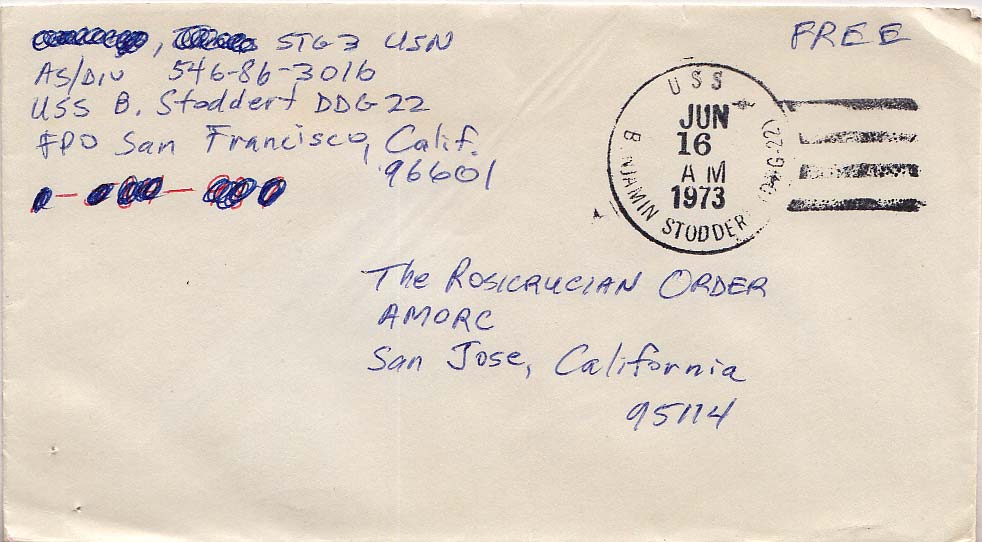 STG3 USN
AS/DIV 546-86-3016
USS B. Stoddert DDG22
FPO San Francisco, Calif.
96601
FREE
USS
JUN
16
AM
1973
B. NJAMIN STODDER
The ROSICRUCIAN ORDER
AMORC
San Jose, California
95114